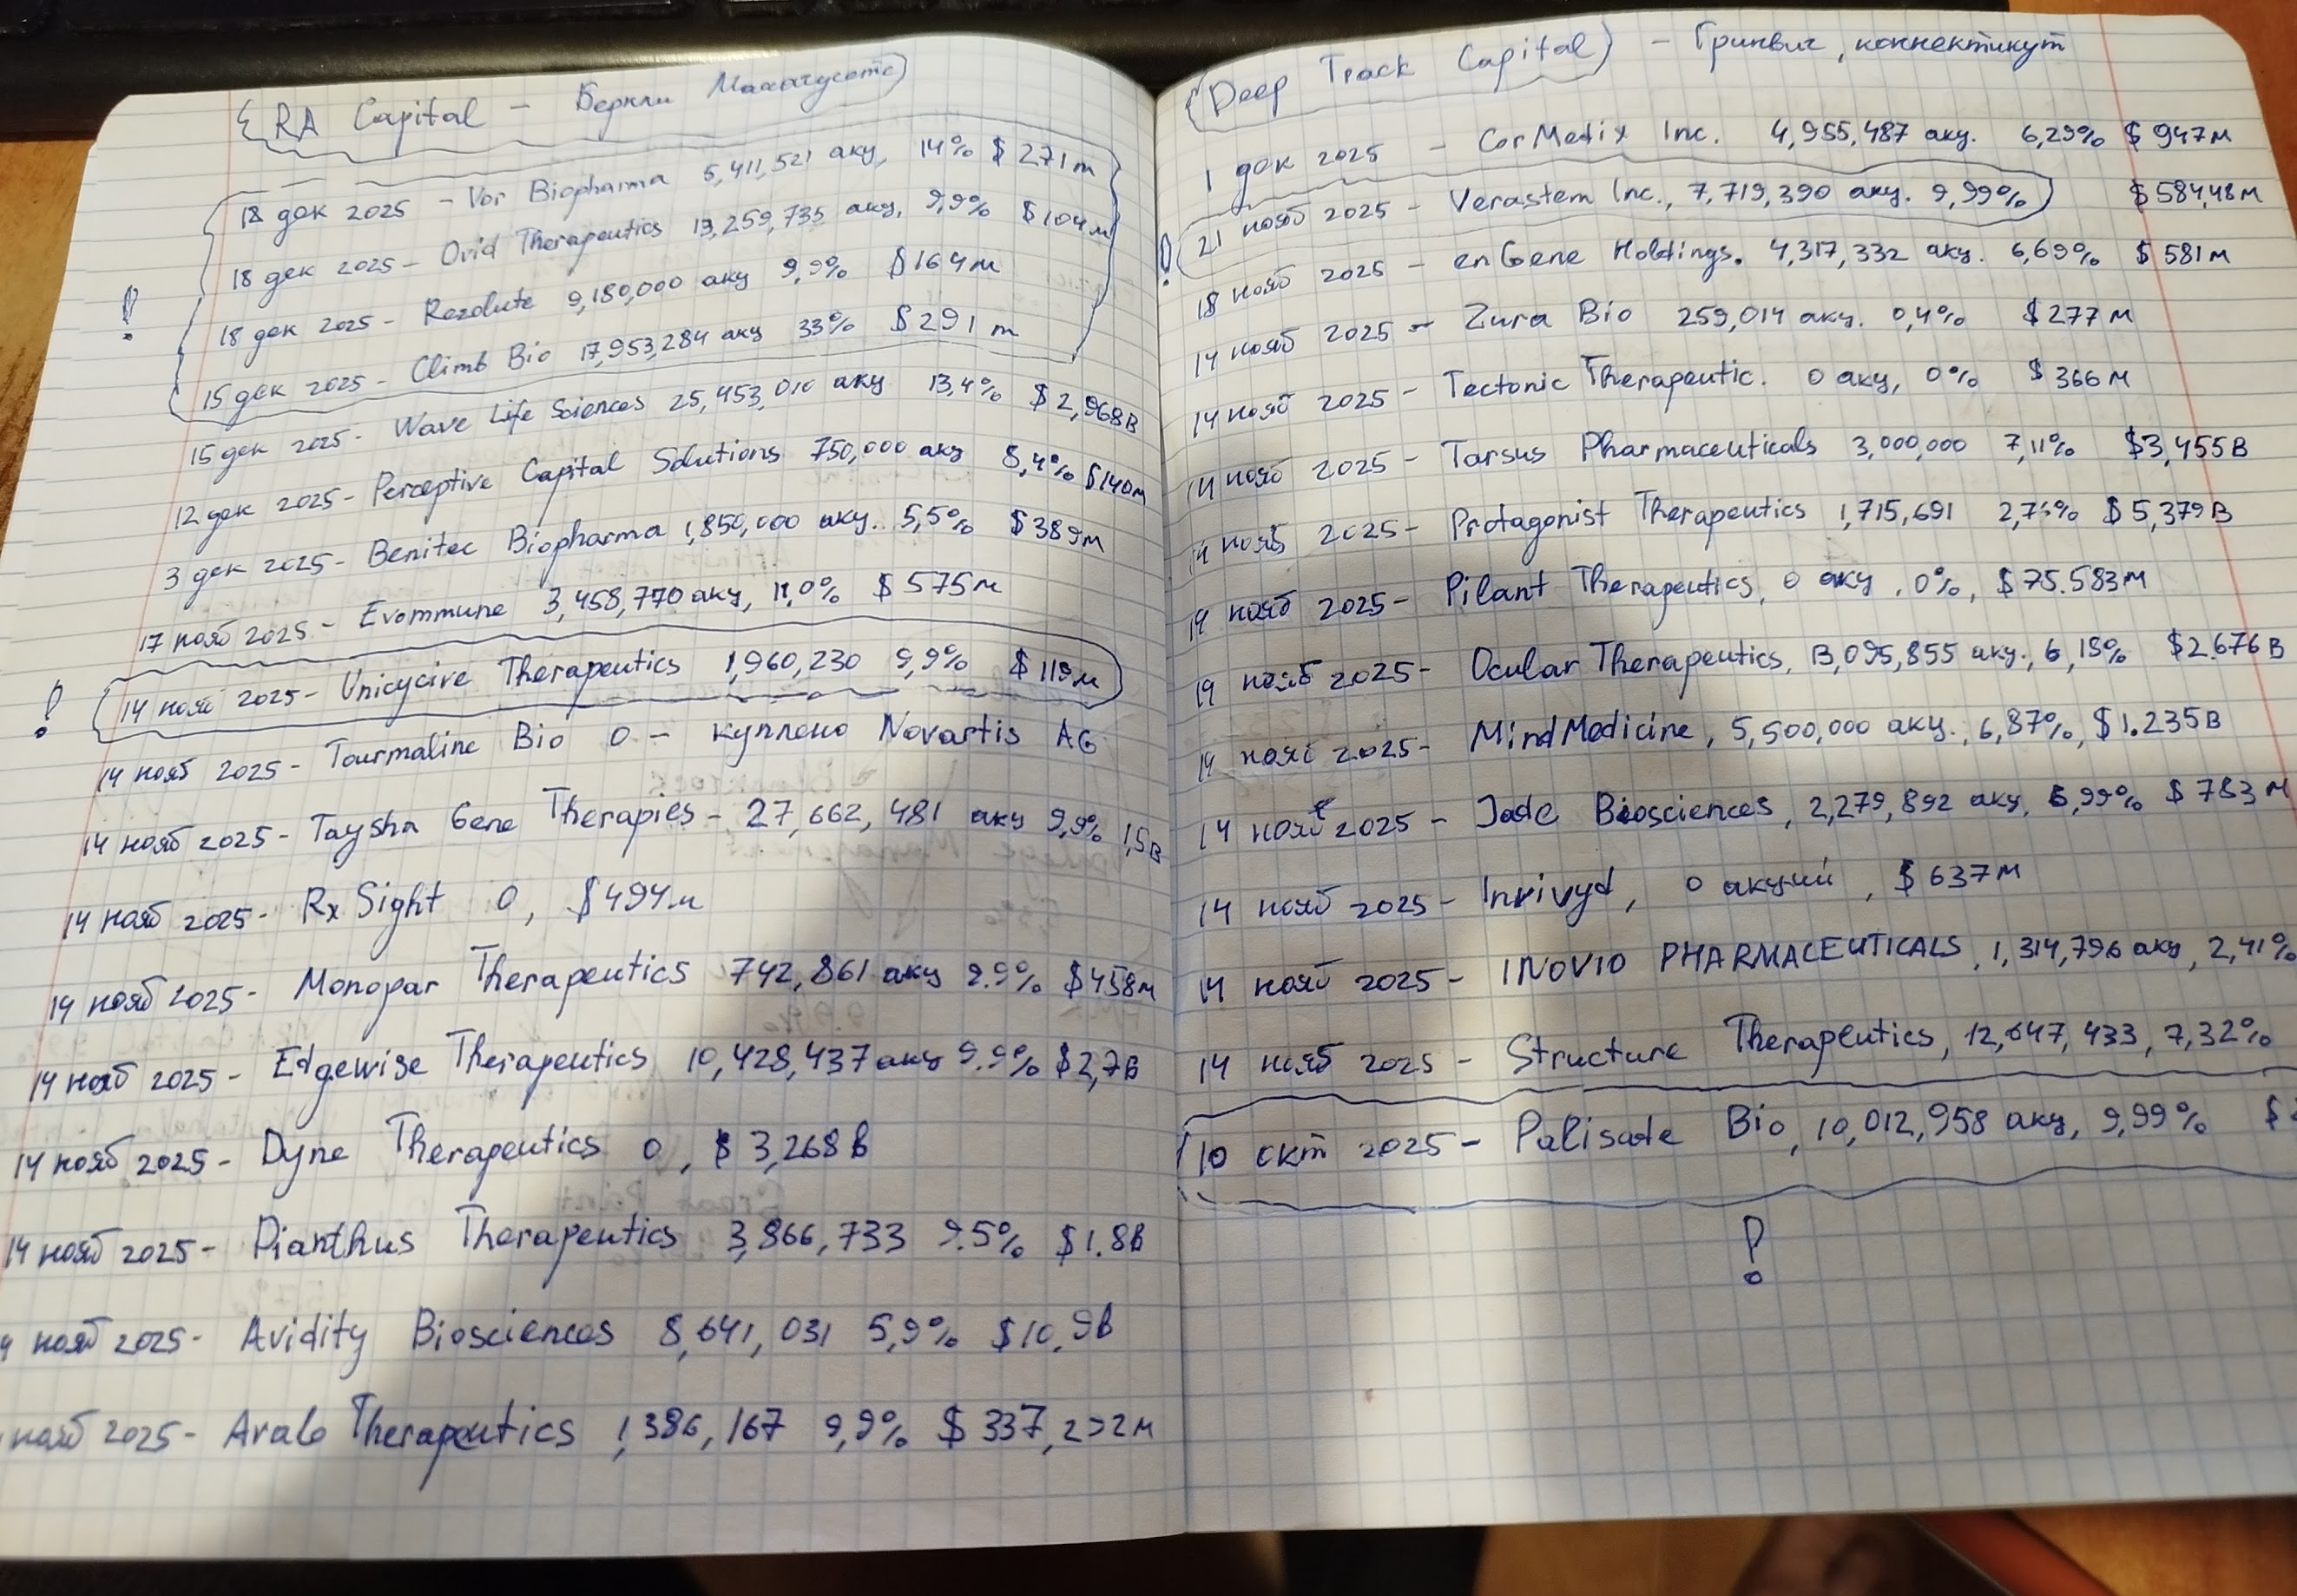 RA Capital - Беркли Массачусетс
18 дек 2025 - Vor Biopharma 5,411,521 акц, 14% $271m
18 дек 2025 - Ovid Therapeutics 13,259,735 акц, 9,9% $104м
18 дек 2025 - Rezolute 9,180,000 акц 9,9% $164м
15 дек 2025 - Climb Bio 17,953,284 акц 33% $291m
15 дек 2025 - Wave Life Sciences 25,453,010 акц 13,4% $2,968B
12 дек 2025 - Perceptive Capital Solutions 750,000 акц 8,4% $140м
3 дек 2025 - Benitec Biopharma 1,850,000 акц. 5,5% $389м
17 нояб 2025 - Evommune 3,458,770 акц, 11,0% $575м
! 14 нояб 2025 - Unicycive Therapeutics 1,960,230 9,9% $119м
14 нояб 2025 - Tourmaline Bio 0 - куплено Novartis AG
14 нояб 2025 - Taysha Gene Therapies - 27,662,481 акц 9,9% 1,5B
14 нояб 2025 - RxSight 0, $494м
14 нояб 2025 - Monopar Therapeutics 742,861 акц 9.9% $458м
14 нояб 2025 - Edgewise Therapeutics 10,428,437 акц 9.9% $2,7B
14 нояб 2025 - Dyne Therapeutics 0, $3,268B
14 нояб 2025 - Dianthus Therapeutics 3,866,733 9.5% $1.8B
4 нояб 2025 - Avidity Biosciences 8,641,031 5,9% $10,9B
нояб 2025 - Avalo Therapeutics 1,386,167 9,9% $337,292м
Deep Track Capital - Гринвич, коннектикут
1 дек 2025 - CorMedix Inc. 4,955,487 акц. 6,29% $947м
! 21 нояб 2025 - Verastem Inc., 7,719,390 акц. 9,99% $584,48м
18 нояб 2025 - enGene Holdings. 4,317,332 акц. 6,69% $581м
14 нояб 2025 - Zura Bio 259,014 акц. 0,4% $277м
14 нояб 2025 - Tectonic Therapeutic. 0 акц, 0% $366м
14 нояб 2025 - Tarsus Pharmaceuticals 3,000,000 7,11% $3,455B
14 нояб 2025 - Protagonist Therapeutics 1,715,691 $5,379B
19 нояб 2025 - Pilant Therapeutics, 0 акц, 0%, $75.583м
19 нояб 2025 - Ocular Therapeutics, 13,095,855 акц., 6,15% $2.676B
14 нояб 2025 - MindMedicine, 5,500,000 акц., 6,87%, $1.235B
14 нояб 2025 - Jade Biosciences, 2,279,892 акц, 6,99% $783м
14 нояб 2025 - Invivyd, 0 акций, $637м
14 нояб 2025 - INOVIO PHARMACEUTICALS, 1,314,796 акц, 2,41%
14 нояб 2025 - Structure Therapeutics, 12,647,433, 7,32%
10 окт 2025 - Palisade Bio, 10,012,958 акц, 9,99% $
!